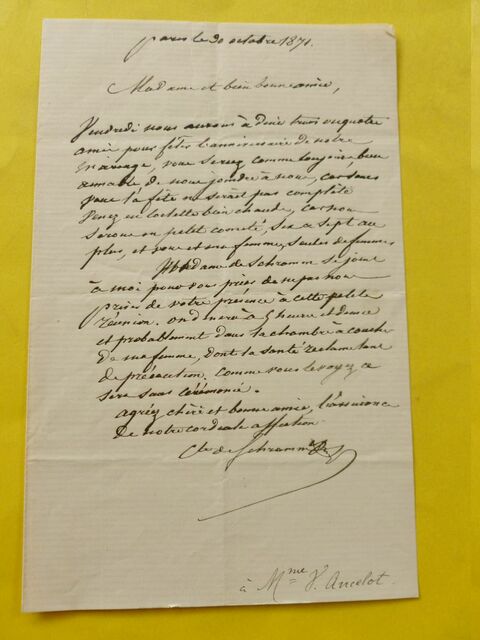 paris le 30 octobre 1871.
Madame et bien bonne amie,
Vendredi nous aurons à diné trois ou quatre
amis pour fêter l'anniversaire de notre
mariage, vous seriez comme toujours, bien
aimable de nous joindre à nous, car sans
vous la fête ne serait pas complète
Venez en toilette bien chaude, car nous
serons en petit comité, six a sept au
plus, et vous et ma femme, seules de femmes
Madame de Schramm se joint
à moi pour vous prier de ne pas nous
priver de votre présence à cette petite
réunion. on dinera à 6 heure et demie
et probablement dans la chambre à coucher
de ma femme, dont la santé réclame tant
de précaution. Comme vous le voyez ce
sera sans cérémonie.
agréez chère et bonne amie, l'assurance
de notre cordiale affection
Cte de Schramm
à Mme V. Ancelot.